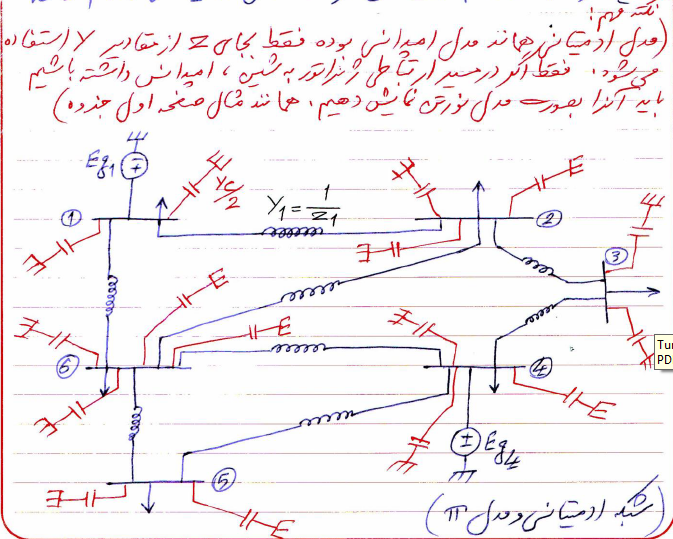 نکته مهم:
(مدل ادمیتانسی همانند مدل امپدانسی بوده فقط بجای Z از مقادیر Y استفاده
می‌شود. فقط اگر در مسیر ارتباطی ژنراتور به شین، امپدانس داشته باشیم
باید آنرا بصورت مدل نورتن نمایش دهیم. همانند مثال صفحه اول جزوه)
Eg1
Yc/2
Y1 = 1/Z1
1
2
3
6
4
Tu
PD
Eg4
5
(شبکه ادمیتانسی و مدل π)